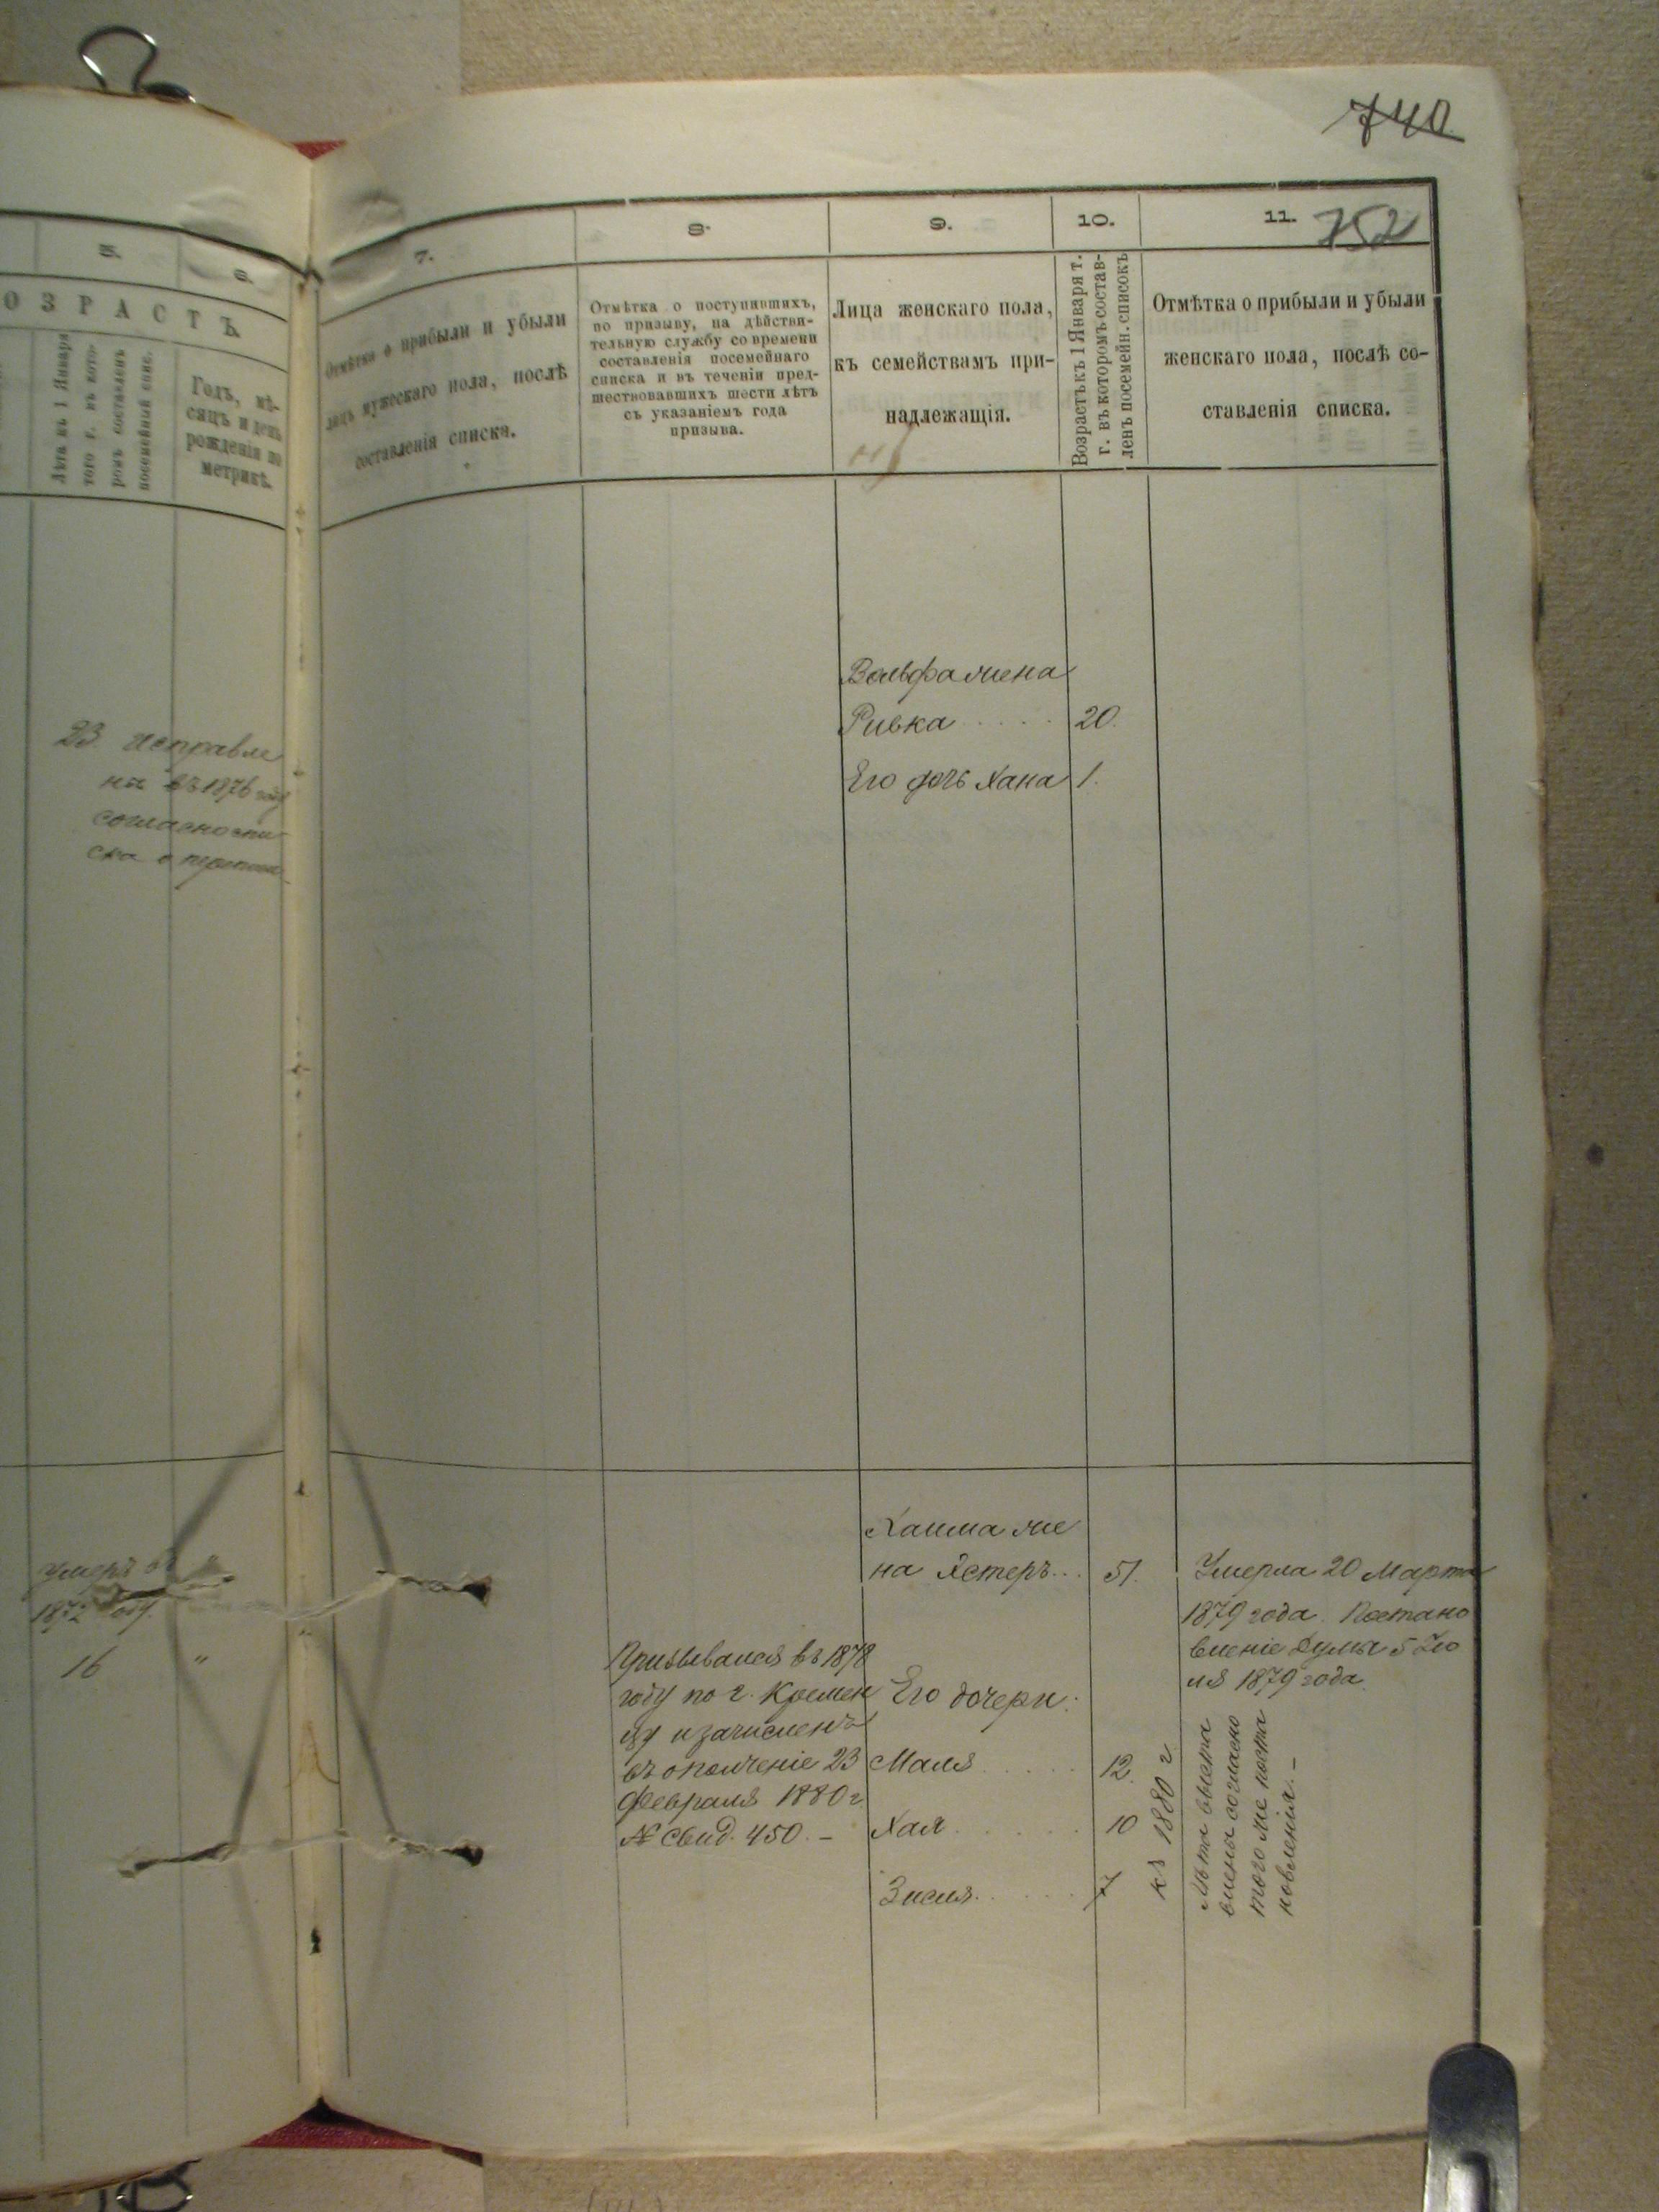 740
752
5.
6.
ОЗРАСТЪ
Лѣта къ 1 Января
того г. въ кото-
ромъ составленъ
посемейный спис.
Годъ, мѣ-
сяцъ и день
рожденія по
метрикѣ.
7.
Отмѣтка о прибыли и убыли
лицъ мужескаго пола, послѣ
составленія списка.
8.
Отмѣтка о поступившихъ,
по призыву, на дѣйстви-
тельную службу со времени
составленія посемейнаго
списка и въ теченіи пред-
шествовавшихъ шести лѣтъ
съ указаніемъ года
призыва.
9.
Лица женскаго пола,
къ семействамъ при-
надлежащія.
10.
Возрастъ къ 1 Января т.
г. въ которомъ состав-
ленъ посемейн. списокъ
11.
Отмѣтка о прибыли и убыли
женскаго пола, послѣ со-
ставленія списка.
23 исправле
но въ 1876 году
согласно спи
ска о
Вольфа жена
Ривка 20.
Его дочь Хана 1.
умеръ въ
1872 году.
16 "
Призывался въ 1878
году по г. Кремен
цу и зачисленъ
въ ополченіе 23
Февраля 1880 г.
№ свид. 450. –
Хаима же
на Естеръ... 51.
Его дочери:
Маля 12.
Хая 10
Зисля 7
къ 1880 г.
Умерла 20 Марта
1879 года. Постано
вленіе Думы 5 Ію
ля 1879 года.
Лѣта выста
влены согласно
того же поста
новленія. –